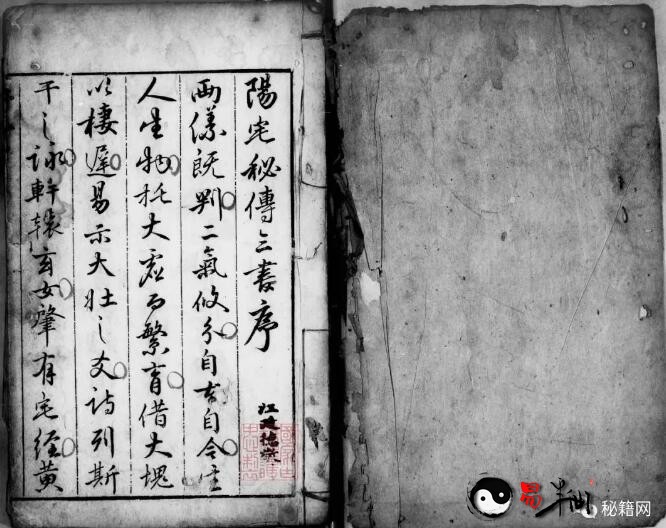 陽宅秘傳三書序
兩儀既判二氣攸分自古自今生
人生物托大虛而繁育借大塊
以棲遲易示大壯之爻詩列斯
干之詠軒轅玄女肇有宅經黃
易
秘籍网